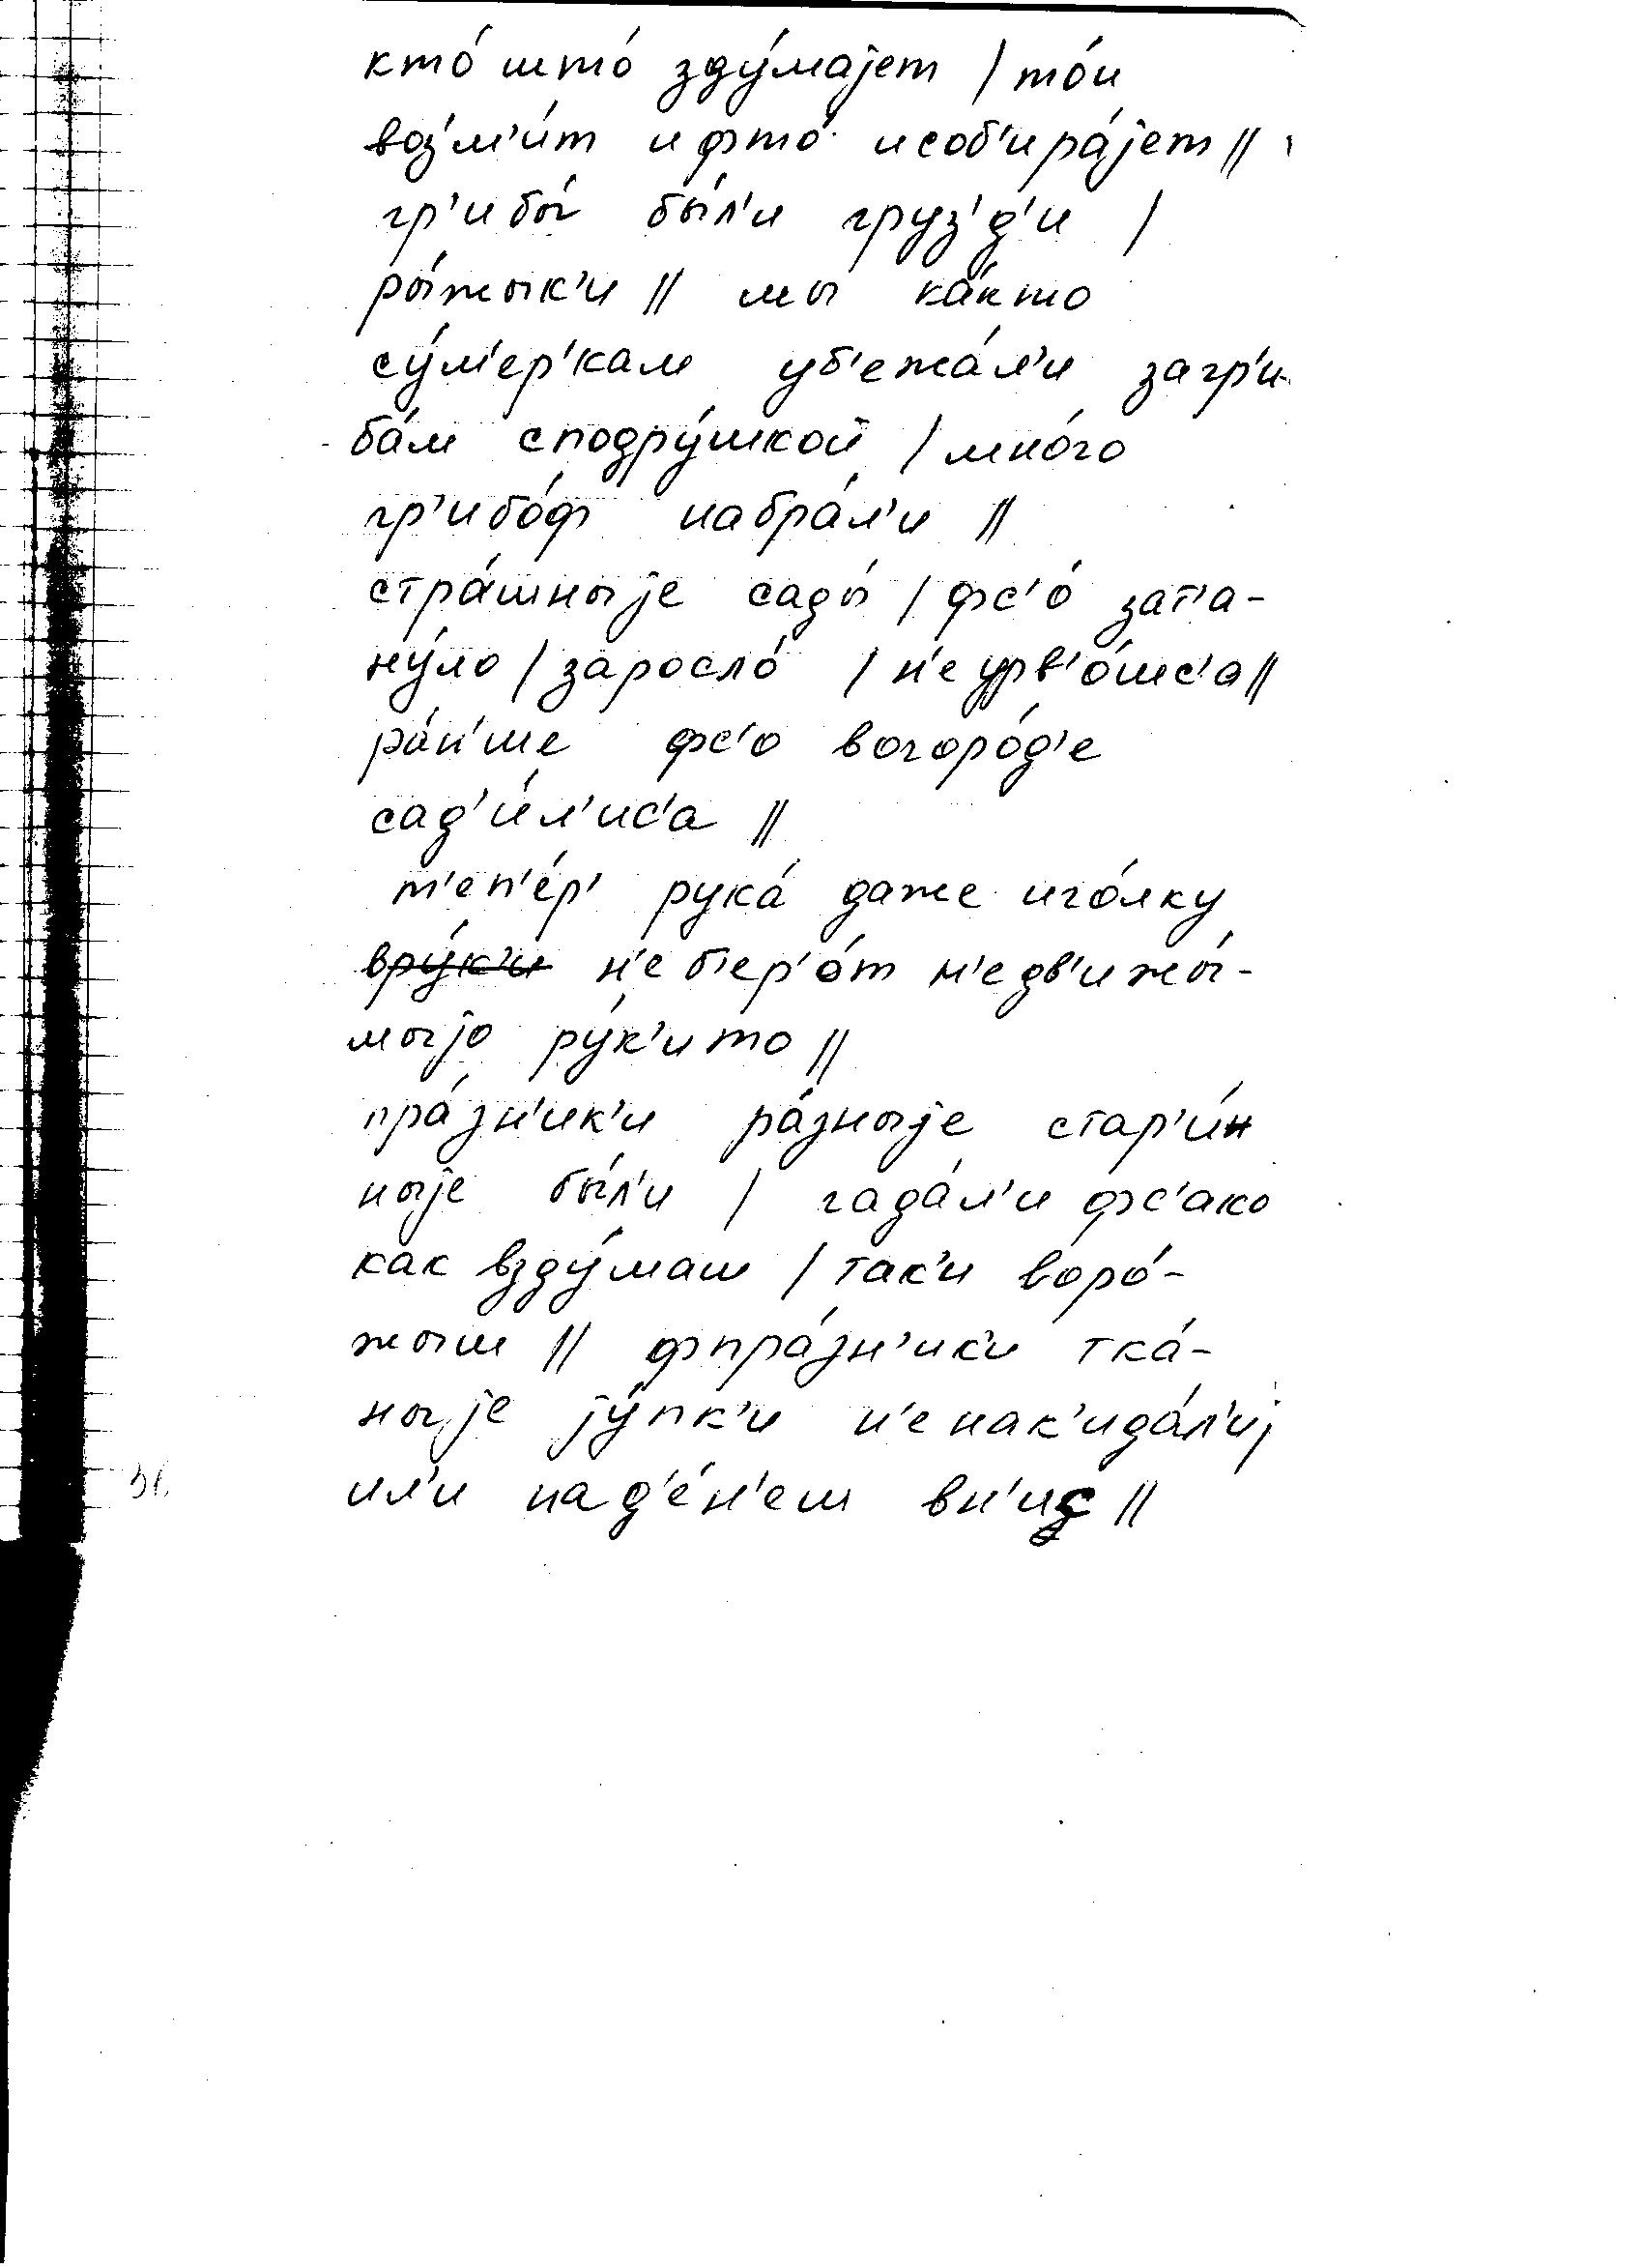 кто́ што́ зду́мајет / то́и
воз'м'и́т и фто́ исоб'ира́јет //
гр'ибы́ бы́л'и груз'д'и /
ры́жык'и // мы ка́кто
су́м'ер'кам уб'ежа́л'и загр'и-
ба́м сподру́шкой / мно́го
гр'ибо́ф набра́л'и //
стра́шныје сады́ / фс'о́ зат'а-
ну́ло / заросло́ / н'е урв'о́шс'а //
ра́н'ше фс'о вогоро́д'е
сад'и́л'ис'а //
т'еп'е́р' рука́ даже иго́лку
вру́к'и н'е б'ер'о́т н'едв'ижы́-
мыјо ру́к'ито //
пра́зн'ик'и ра́зныје стар'и́н
ныје бы́л'и / гада́л'и фс'ако
как взду́маш / так'и воро́-
жыш // фпра́зн'ик'и тка́-
ныје ју́пк'и н'е нак'ида́л'и /
ил'и над'е́н'еш вн'из //